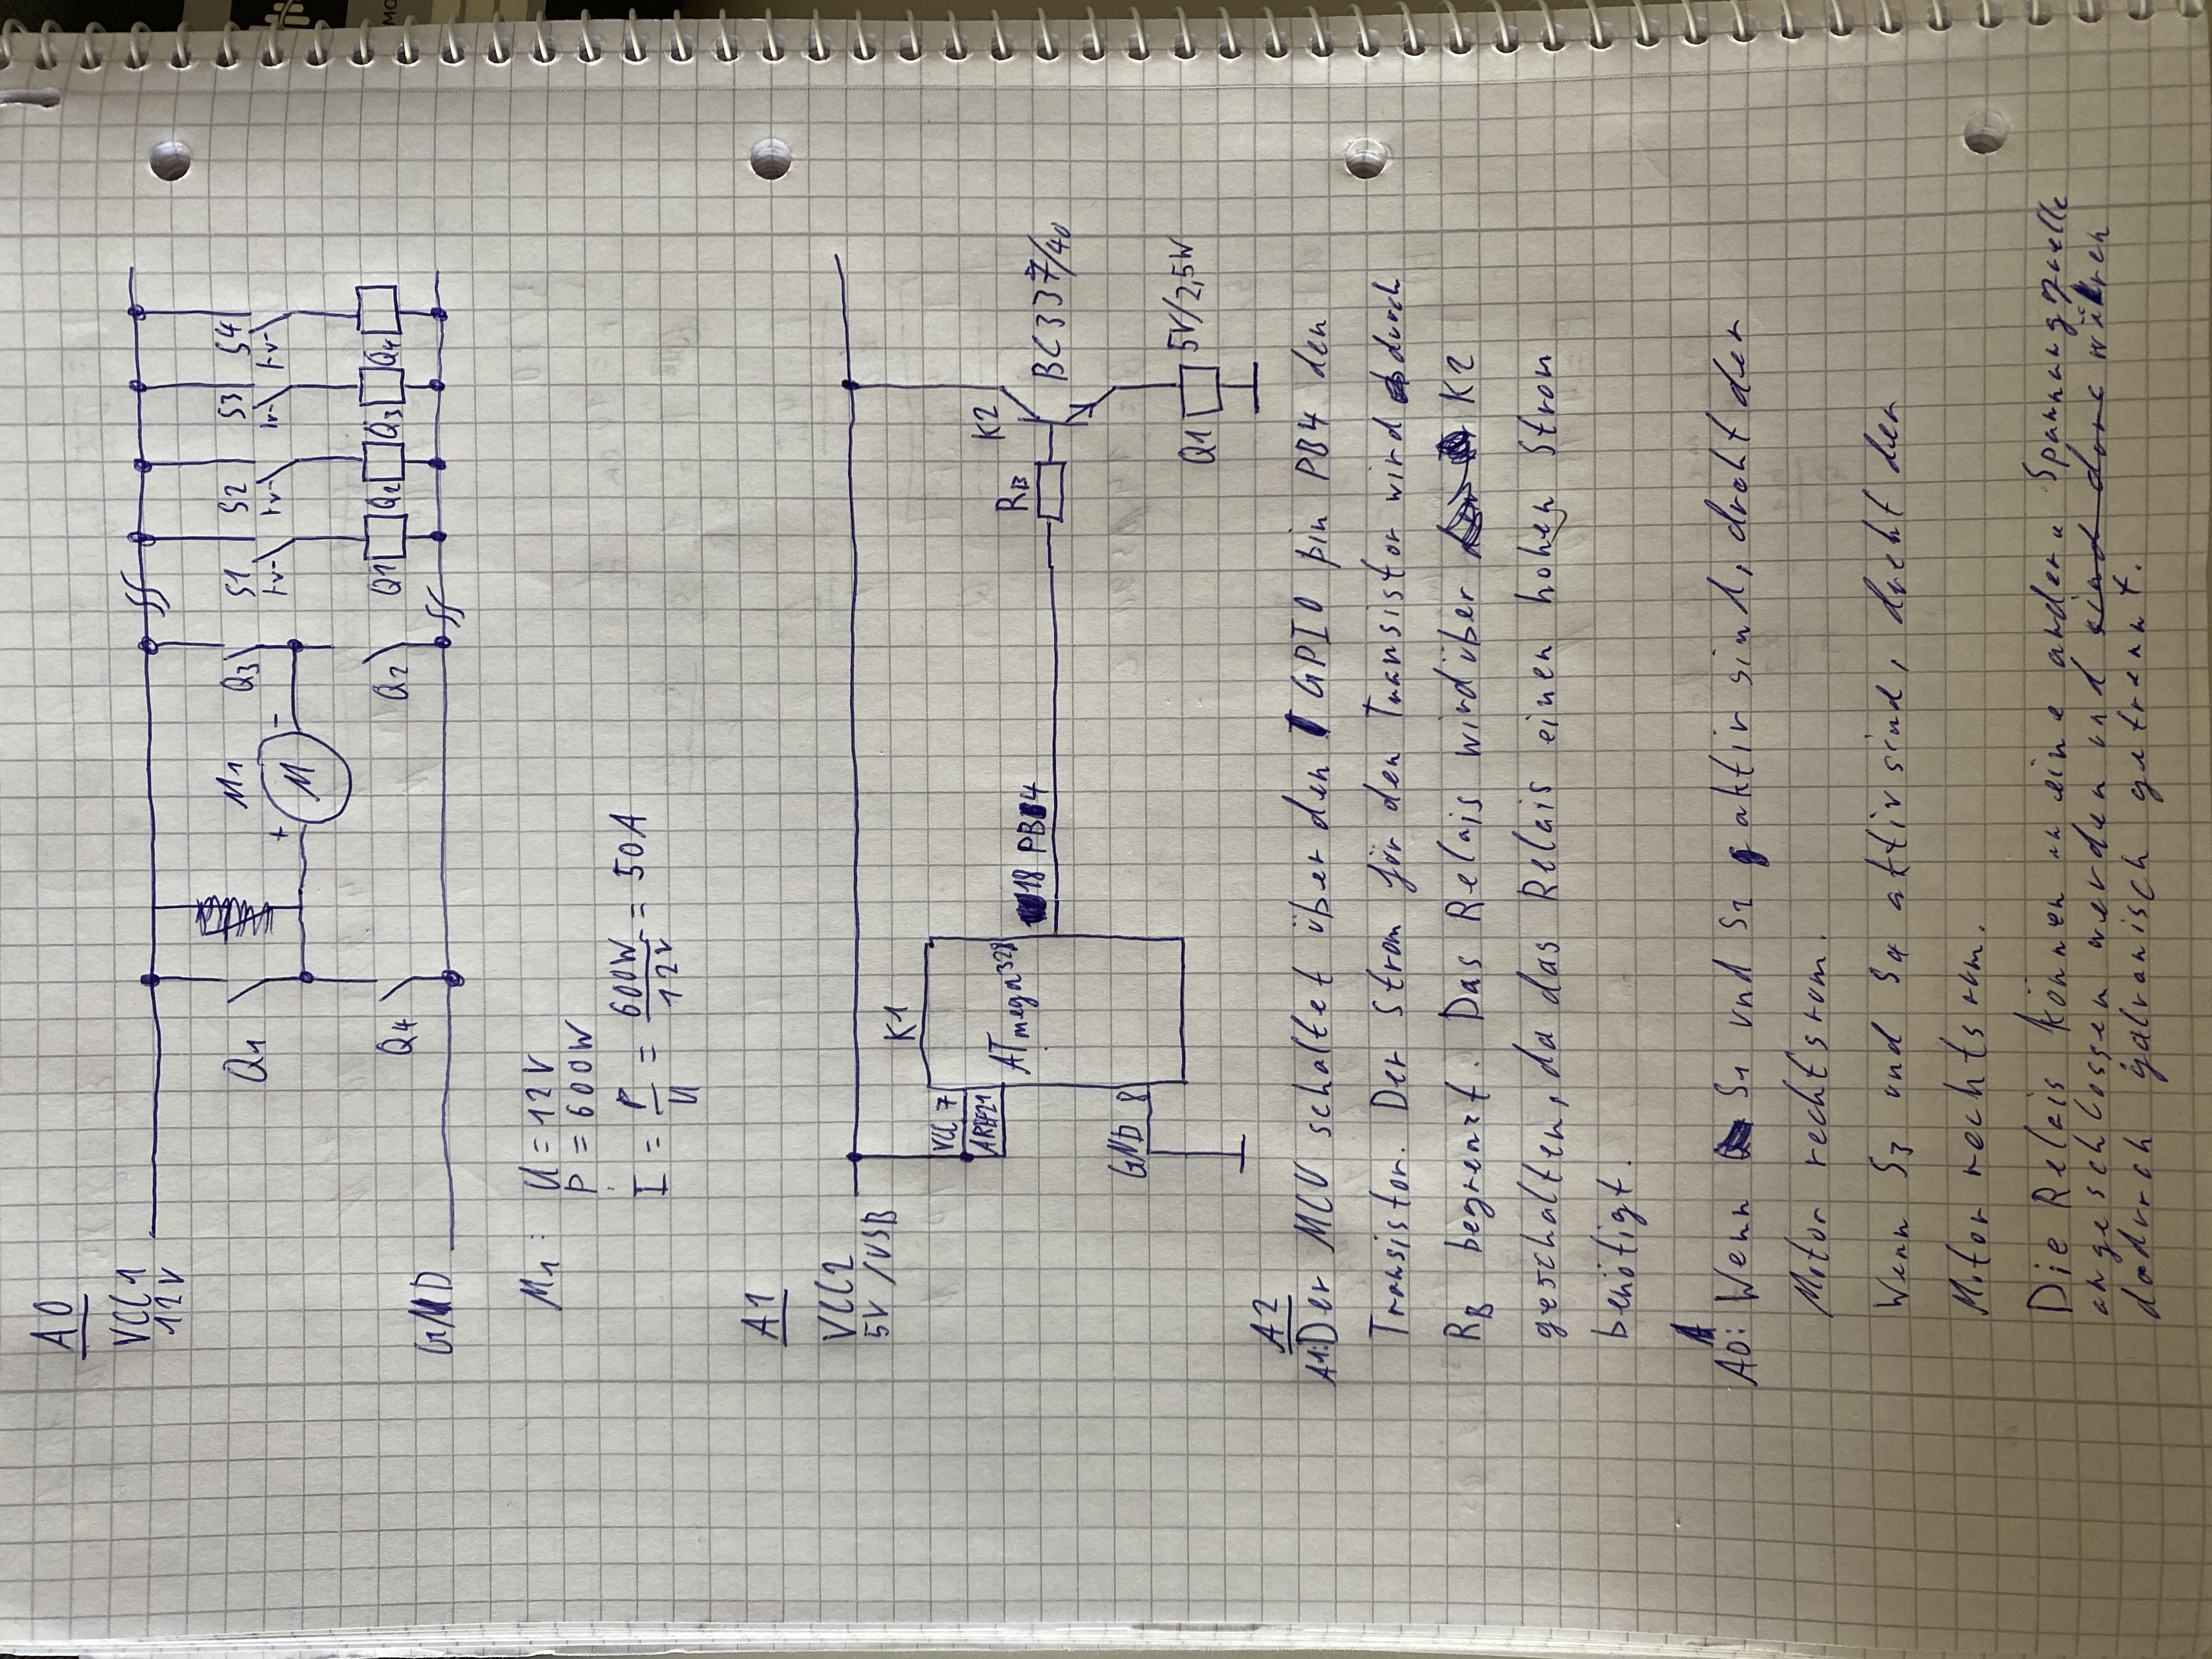 A0
VCC1
12V
Q1
M1
Q3
S1
S2
S3
S4
+
M
-
Q4
Q2
Q1
Q2
Q3
Q4
GND
M1: U = 12V
P = 600W
I = P/U = 600W/12V = 50A
A1
VCC2
5V /USB
K1
VCC 7
AREF21
ATmega328
18 PB4
RB
K2
BC337/40
GND 8
Q1
5V/2,5W
A2
A1: Der MCU schaltet über den GPIO pin PB4 den
Transistor. Der Strom für den Transistor wird durch
RB begrenzt. Das Relais wird über K2
geschalten, da das Relais einen hohen Strom
benötigt.
A0: Wenn S1 und S2 aktiv sind, dreht der
Motor rechtsrum.
Wenn S3 und S4 aktiv sind, dreht der
Motor rechtsrum.
Die Relais können an eine andere Spannungsquelle
angeschlossen werden und wären
dadurch galvanisch getrennt.